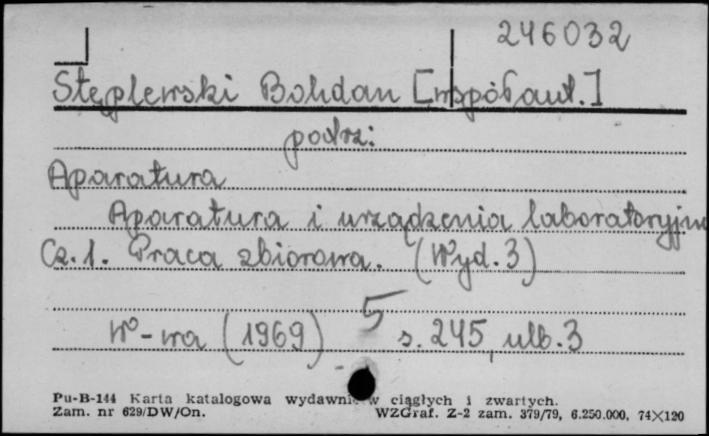 246032
Stęplewski Bohdan [współaut.]
patrz:
Aparatura
Aparatura i urządzenia laboratoryjne
Cz. 1. Praca zbiorowa. (Wyd. 3)
W-wa (1969) 5 s. 245, ulb. 3
Pu-B-144 Karta katalogowa wydawnic w ciągłych i zwartych.
Zam. nr 629/DW/On. WZGraf. Z-2 zam. 379/79, 6.250.000, 74×120